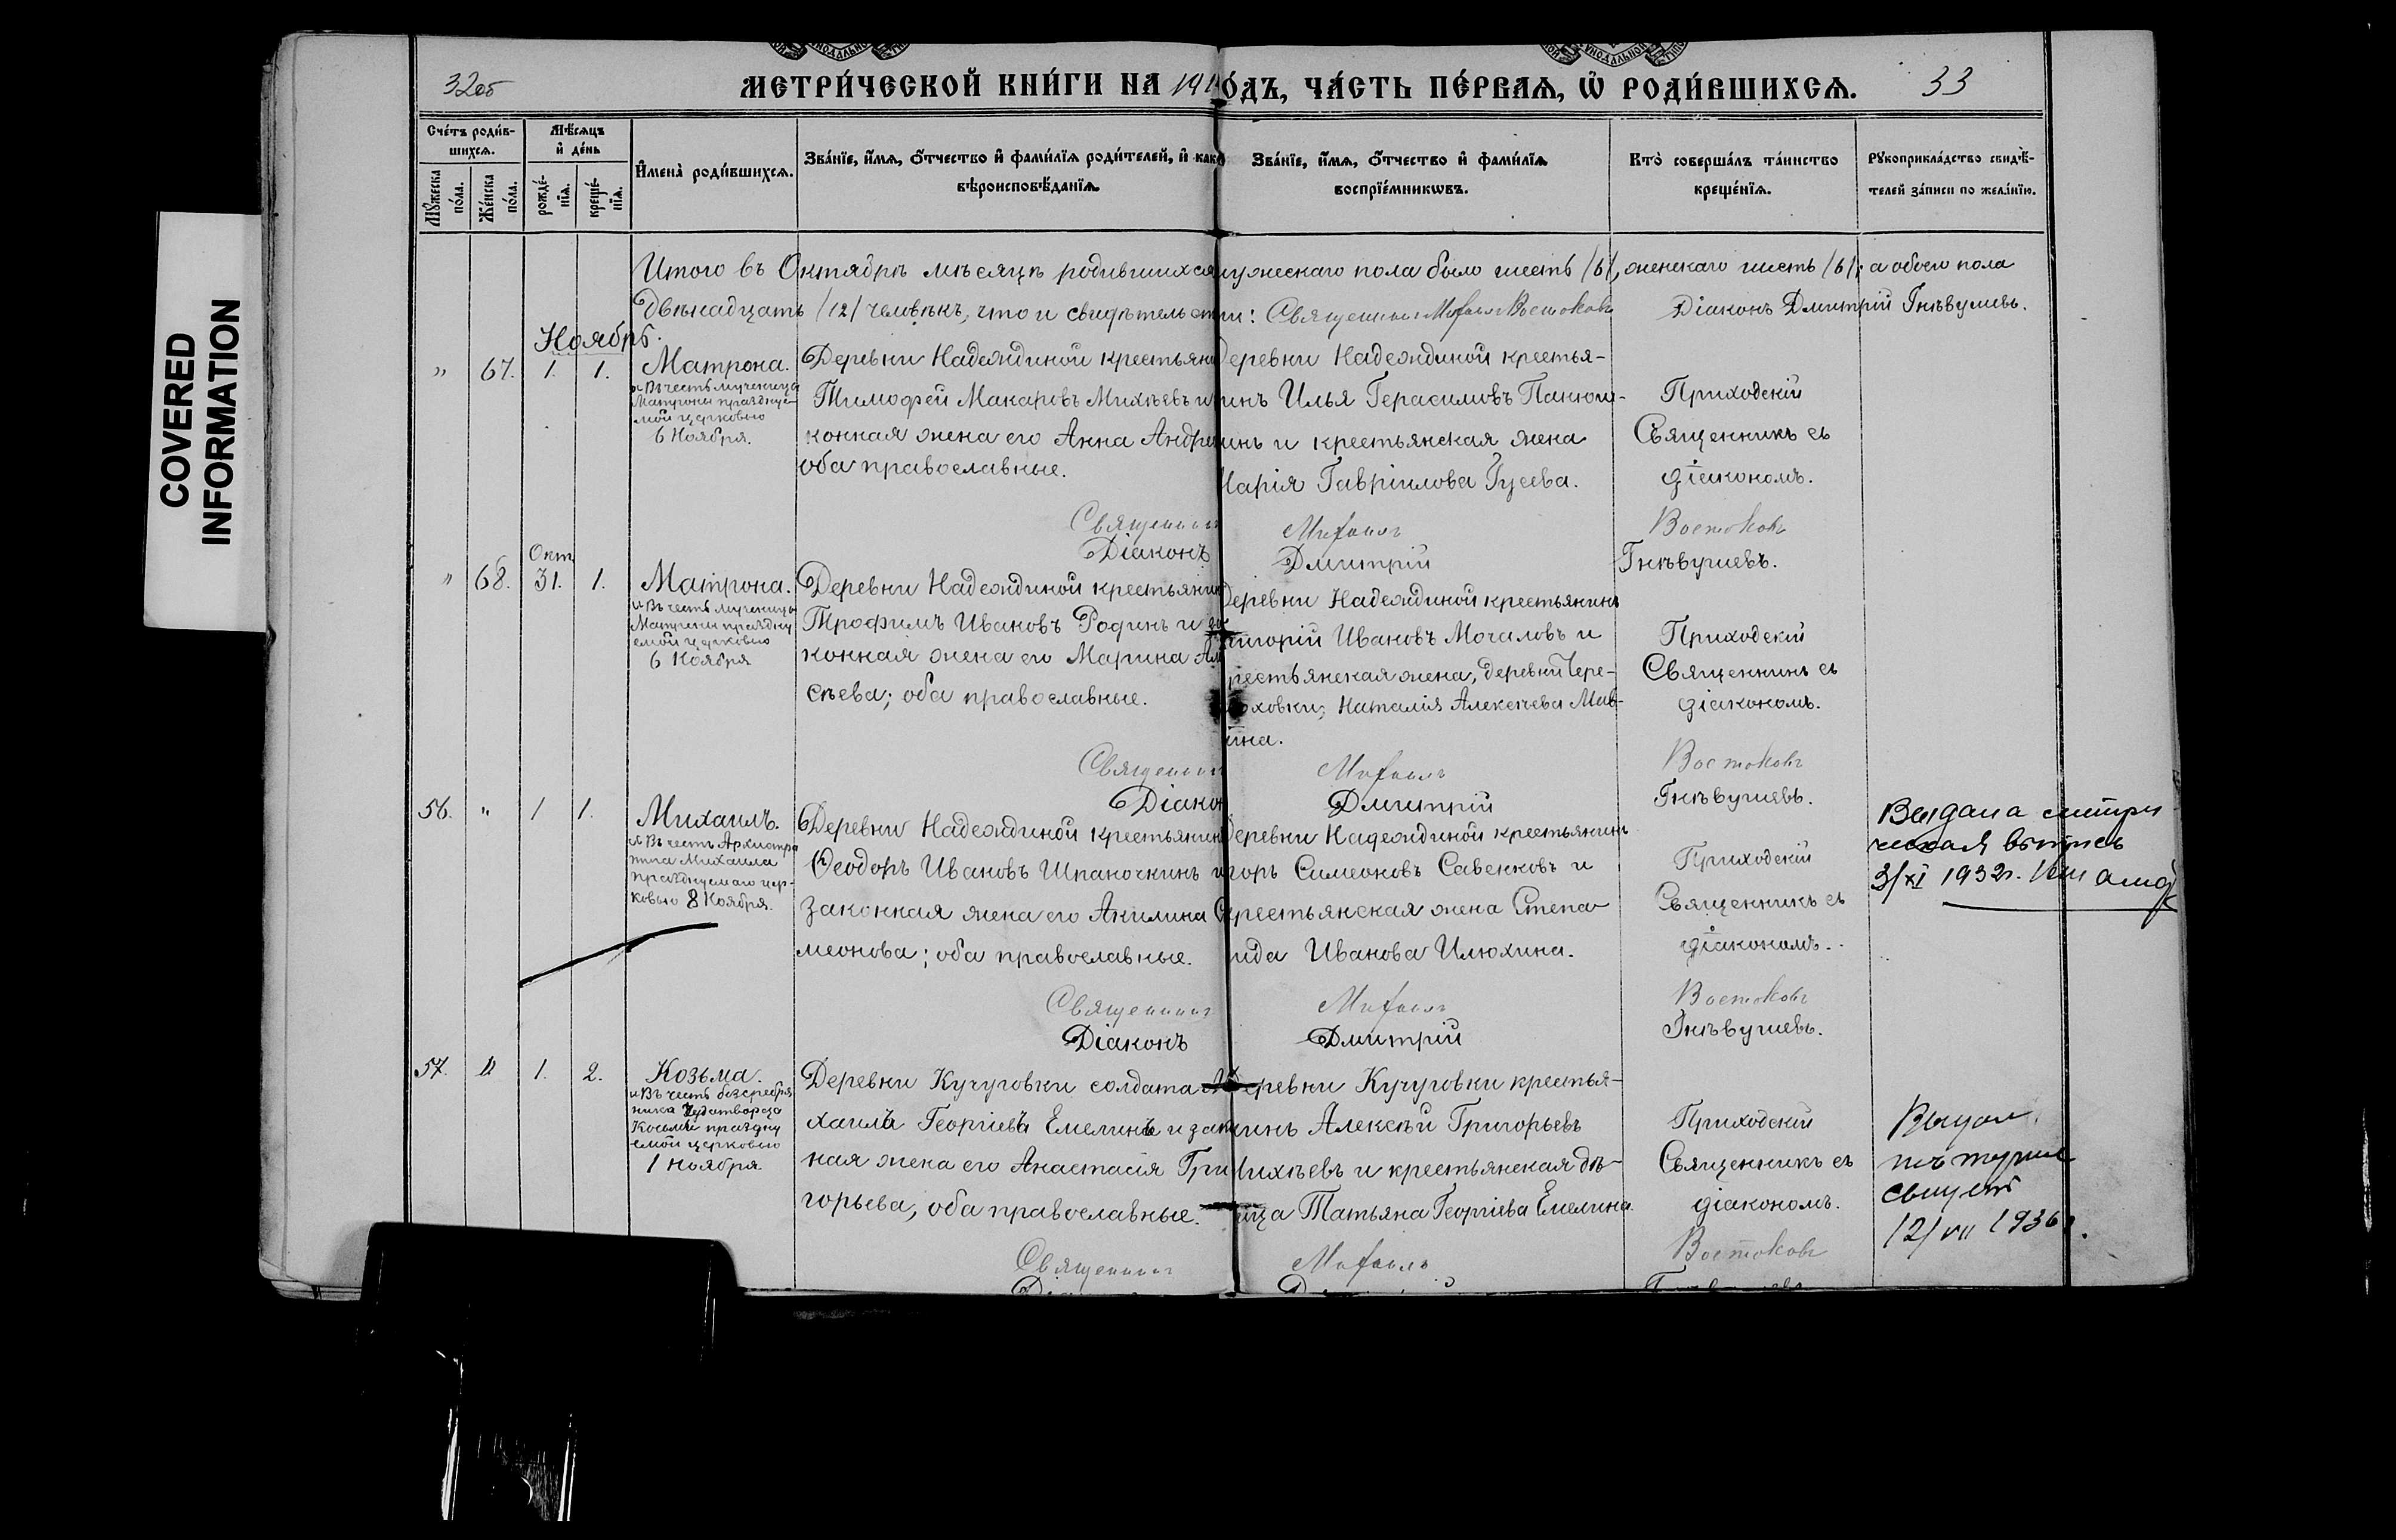 COVERED
INFORMATION
32об
МЕТРИ́ЧЕСКОЙ КНИ́ГИ НА 191 ОДЪ, ЧА́СТЬ ПЕ́РВАѦ, Ѿ РОДИ́ВШИХСѦ.
33
Сче́тъ роди́в-
шихсѧ.
Мꙋжеска
по́ла.
Же́нска
по́ла.
Мѣ́сѧцъ
и҆ де́нь
рожде́-
нїѧ.
креще́-
нїѧ.
И҆мена̀ роди́вшихсѧ.
Зва́нїе, и҆́мѧ, ѻ҆́тчество и҆ фами́лїѧ роди́телей, и҆ како
вѣроисповѣ́данїѧ
Зва́нїе, и҆́мѧ, ѻ҆́тчество и҆ фами́лїѧ
воспрїе́мникѡвъ.
Кто̀ соверша́лъ та́инство
креще́нїѧ.
Рꙋкоприкла́дство свидѣ́-
телей за́писи по жела́нїю.
Итого въ Октябрѣ мѣсяцѣ родившихся мужескаго пола было шесть /6/, женскаго шесть /6/; а обоего пола
двѣнадцать /12/ человѣкъ, что и свидѣтельст ми: Священникъ Михаилъ Востоковъ Діаконъ Дмитрій Гнѣвушевъ.
Ноябрь.
" 67. 1. 1. Матрона.
и Въ честь мученицы
Матроны праздну-
мой церковію
6 Ноября.
Деревни Надеждиной крестьяни
Тимофей Макаровъ Михѣевъ и
конная жена его Анна Андре
оба православные.
Деревни Надеждиной крестья-
инъ Илья Герасимовъ Панюш-
инъ и крестьянская жена
Марія Гавріилова Гусева.
Приходскій
Священникъ съ
діакономъ.
Священникъ Михаилъ Востоковъ
Діаконъ Дмитрій Гнѣвушевъ.
" 68. Окт. 31. 1. Матрона.
и Въ честь мученицы
Матроны праздну
емой церковію
6 Ноября
Деревни Надеждиной крестьянин
Трофимъ Ивановъ Родинъ и за
конная жена его Марина Ал
сѣева; оба православные.
Деревни Надеждиной крестьянинъ
игорій Ивановъ Мочаловъ и
рестьянская жена, деревни Чере-
ховки, Наталія Алексѣева Мав-
ина.
Приходскій
Священникъ съ
діакономъ.
Священникъ Михаилъ Востоковъ
Діаконъ Дмитрій Гнѣвушевъ.
56. " 1 1. Михаилъ.
и Въ честь Архистра
тига Михаила
празднуемаго цер-
ковью 8 Ноября.
Деревни Надеждиной крестьянин
Ѳеодоръ Ивановъ Шпаночкинъ и
законная жена его Акилина Си
меонова; оба православные.
Деревни Надеждиной крестьянинъ
горъ Симеоновъ Савенковъ и
крестьянская жена Степа-
нида Иванова Илюхина.
Приходскій
Священникъ съ
діакономъ.
Выдана метри
ческая выпись
3/XI 1932 г.
Священникъ Михаилъ Востоковъ
Діаконъ Дмитрій Гнѣвушевъ.
57. " 1. 2. Козьма.
и Въ честь безсребрен
ника Чудотворца
Косьмы праздну
емой церковію
1 Ноября.
Деревни Кучуговки солдата Ми
хаила Георгіева Емелина и закон
ная жена его Анастасія Гри
горьева, оба православные.
Деревни Кучуговки крестья-
нинъ Алексѣй Григорьевъ
Михѣевъ и крестьянская дѣ-
вица Татьяна Георгіева Емелина.
Приходскій
Священникъ съ
діакономъ.
12/VII 1936 г.
Священникъ Михаилъ Востоковъ